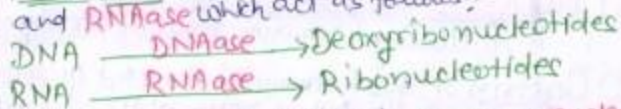 and RNAase which act as follows:
DNA DNAase → Deoxyribonucleotides
RNA RNAase → Ribonucleotides